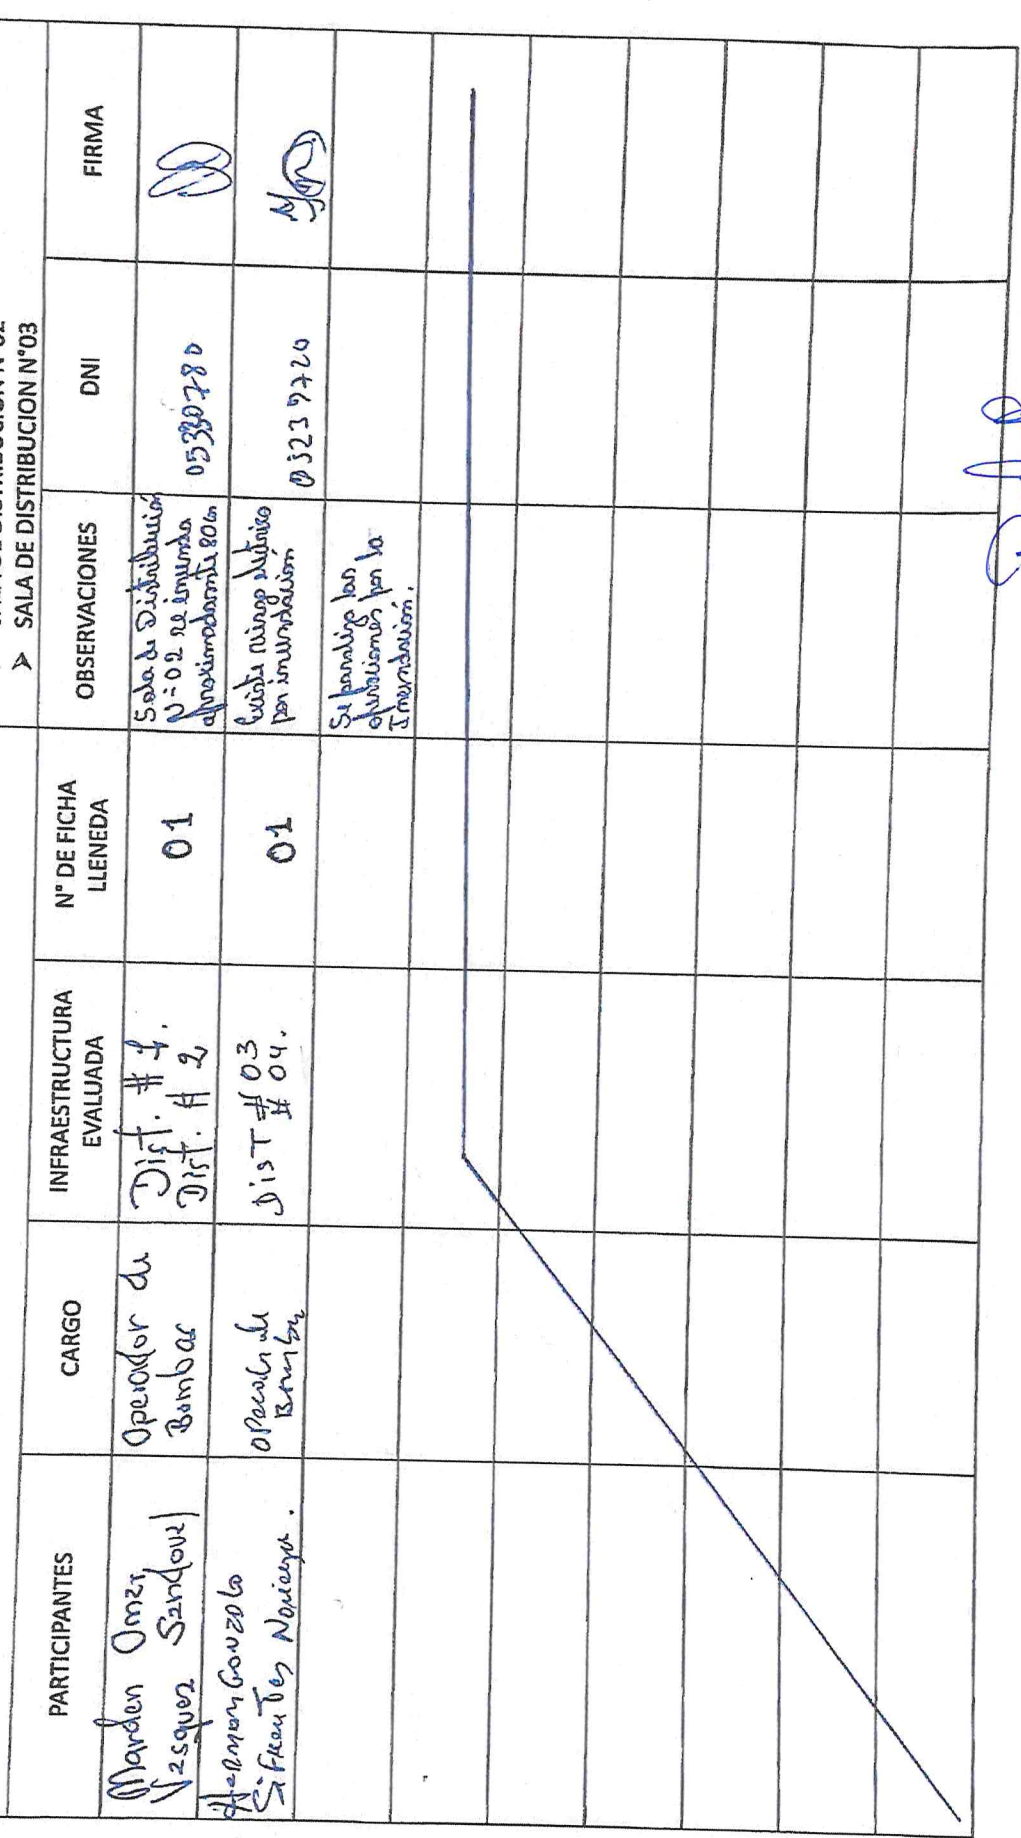 ➤ SALA DE DISTRIBUCION N°03
PARTICIPANTES
CARGO
INFRAESTRUCTURA
EVALUADA
N° DE FICHA
LLENEDA
OBSERVACIONES
DNI
FIRMA
Marden Omar
Vasquez Sandoval
Operador de
Bombas
Dist. # 1.
Dist. # 2
01
Sala de Distribución
N=02 se inunda
aproximadamente 80cm
05330780
Herman Gonzalo
Sifuentes Noriega.
Operador de
Bomba
DIST # 03
# 04.
01
Existe riesgo electrico
por inundación
05239720
Se paraliza las
operaciones por la
Inundación.